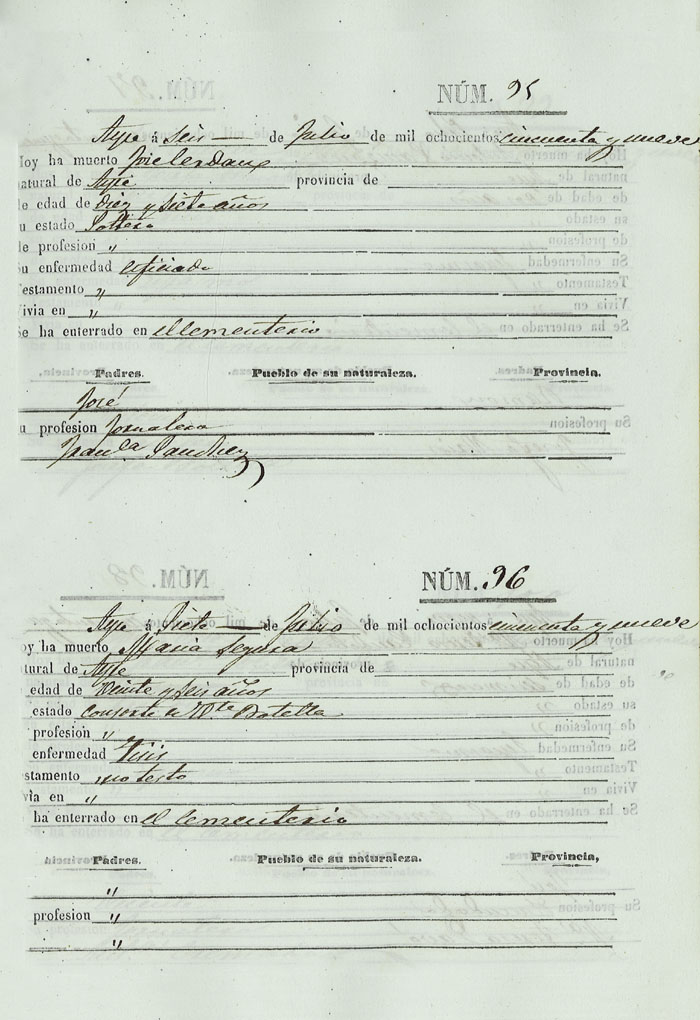 NÚM. 95
Aspe á Seis de Julio de mil ochocientos cincuenta y nueve
oy ha muerto José
atural de Aspe provincia de
e edad de Diez y Siete años
u estado Soltero
e profesion "
u enfermedad
estamento "
ivia en "
Se ha enterrado en el Cementerio
Padres. Pueblo de su naturaleza. Provincia.
José
u profesion Jornalero
Sanchez
NÚM. 96
Aspe á Siete de Julio de mil ochocientos cincuenta y nueve
oy ha muerto Maria Segura
tural de Aspe provincia de
edad de Veinte y Seis años
estado Consorte de Vte Botella
profesion "
enfermedad Tisis
stamento no testo
vía en "
ha enterrado en el Cementerio
Padres. Pueblo de su naturaleza. Provincia,
"
profesion "
"